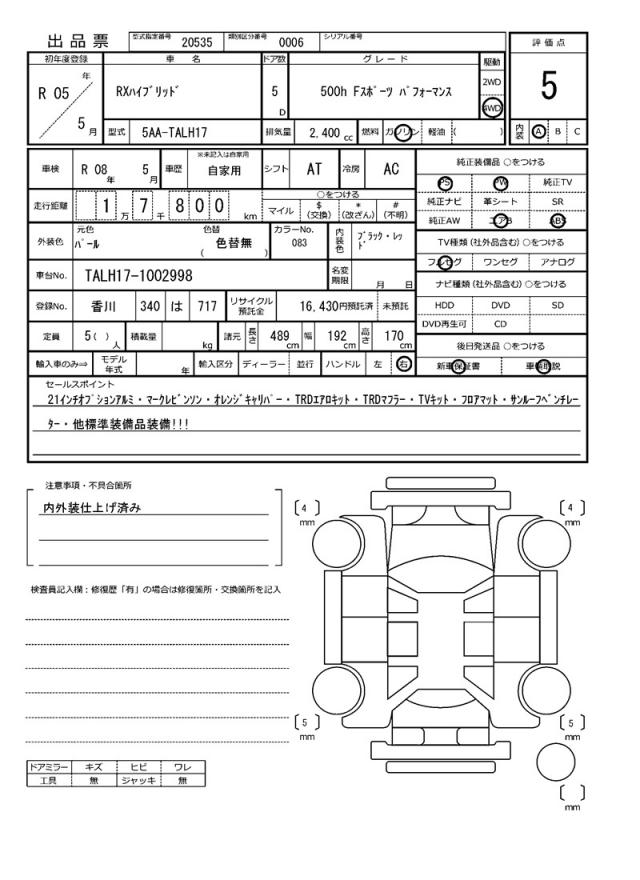 出品票 型式指定番号 20535 類別区分番号 0006 シリアル番号
評価点
5
初年度登録 車名 ドア数 グレード 駆動
R 05 年 RXハイブリッド 5 D 500h Fスポーツ パフォーマンス 2WD
4WD
5 月 型式 5AA-TALH17 排気量 2,400 cc 燃料 ガソリン 軽油 ( ) 内装 A B C
車検 R 08 年 5 月 車歴 ※未記入は自家用 自家用 シフト AT 冷房 AC
走行距離 1 万 7 千 8 0 0 km ○をつける
マイル $ (交換) * (改ざん) # (不明)
外装色 元色 パール 色替 色替無 ( ) カラーNo. 083 内装色 ブラック・レッド
車台No. TALH17-1002998 名変期限 月 日
登録No. 香川 340 は 717 リサイクル預託金 16,430円預託済 未預託
定員 5 ( ) 人 積載量 kg 諸元 長さ 489 cm 幅 192 cm 高さ 170 cm
輸入車のみ⇒ モデル年式 年 輸入区分 ディーラー 並行 ハンドル 左 右
純正装備品 ○をつける
PS PW 純正TV
純正ナビ 革シート SR
純正AW エアB ABS
TV種類 (社外品含む) ○をつける
フルセグ ワンセグ アナログ
ナビ種類 (社外品含む) ○をつける
HDD DVD SD
DVD再生可 CD
後日発送品 ○をつける
新車保証書 車輌取説
セールスポイント
21インチオプションアルミ・マークレビンソン・オレンジキャリパー・TRDエアロキット・TRDマフラー・TVキット・フロアマット・サンルーフベンチレー
ター・他標準装備品装備!!!
注意事項・不具合箇所
内外装仕上げ済み
検査員記入欄：修復歴「有」の場合は修復箇所・交換箇所を記入
[ 4 ] mm
[ 4 ] mm
[ 5 ] mm
[ 5 ] mm
[ ] mm
ドアミラー キズ ヒビ ワレ
工具 無 ジャッキ 無